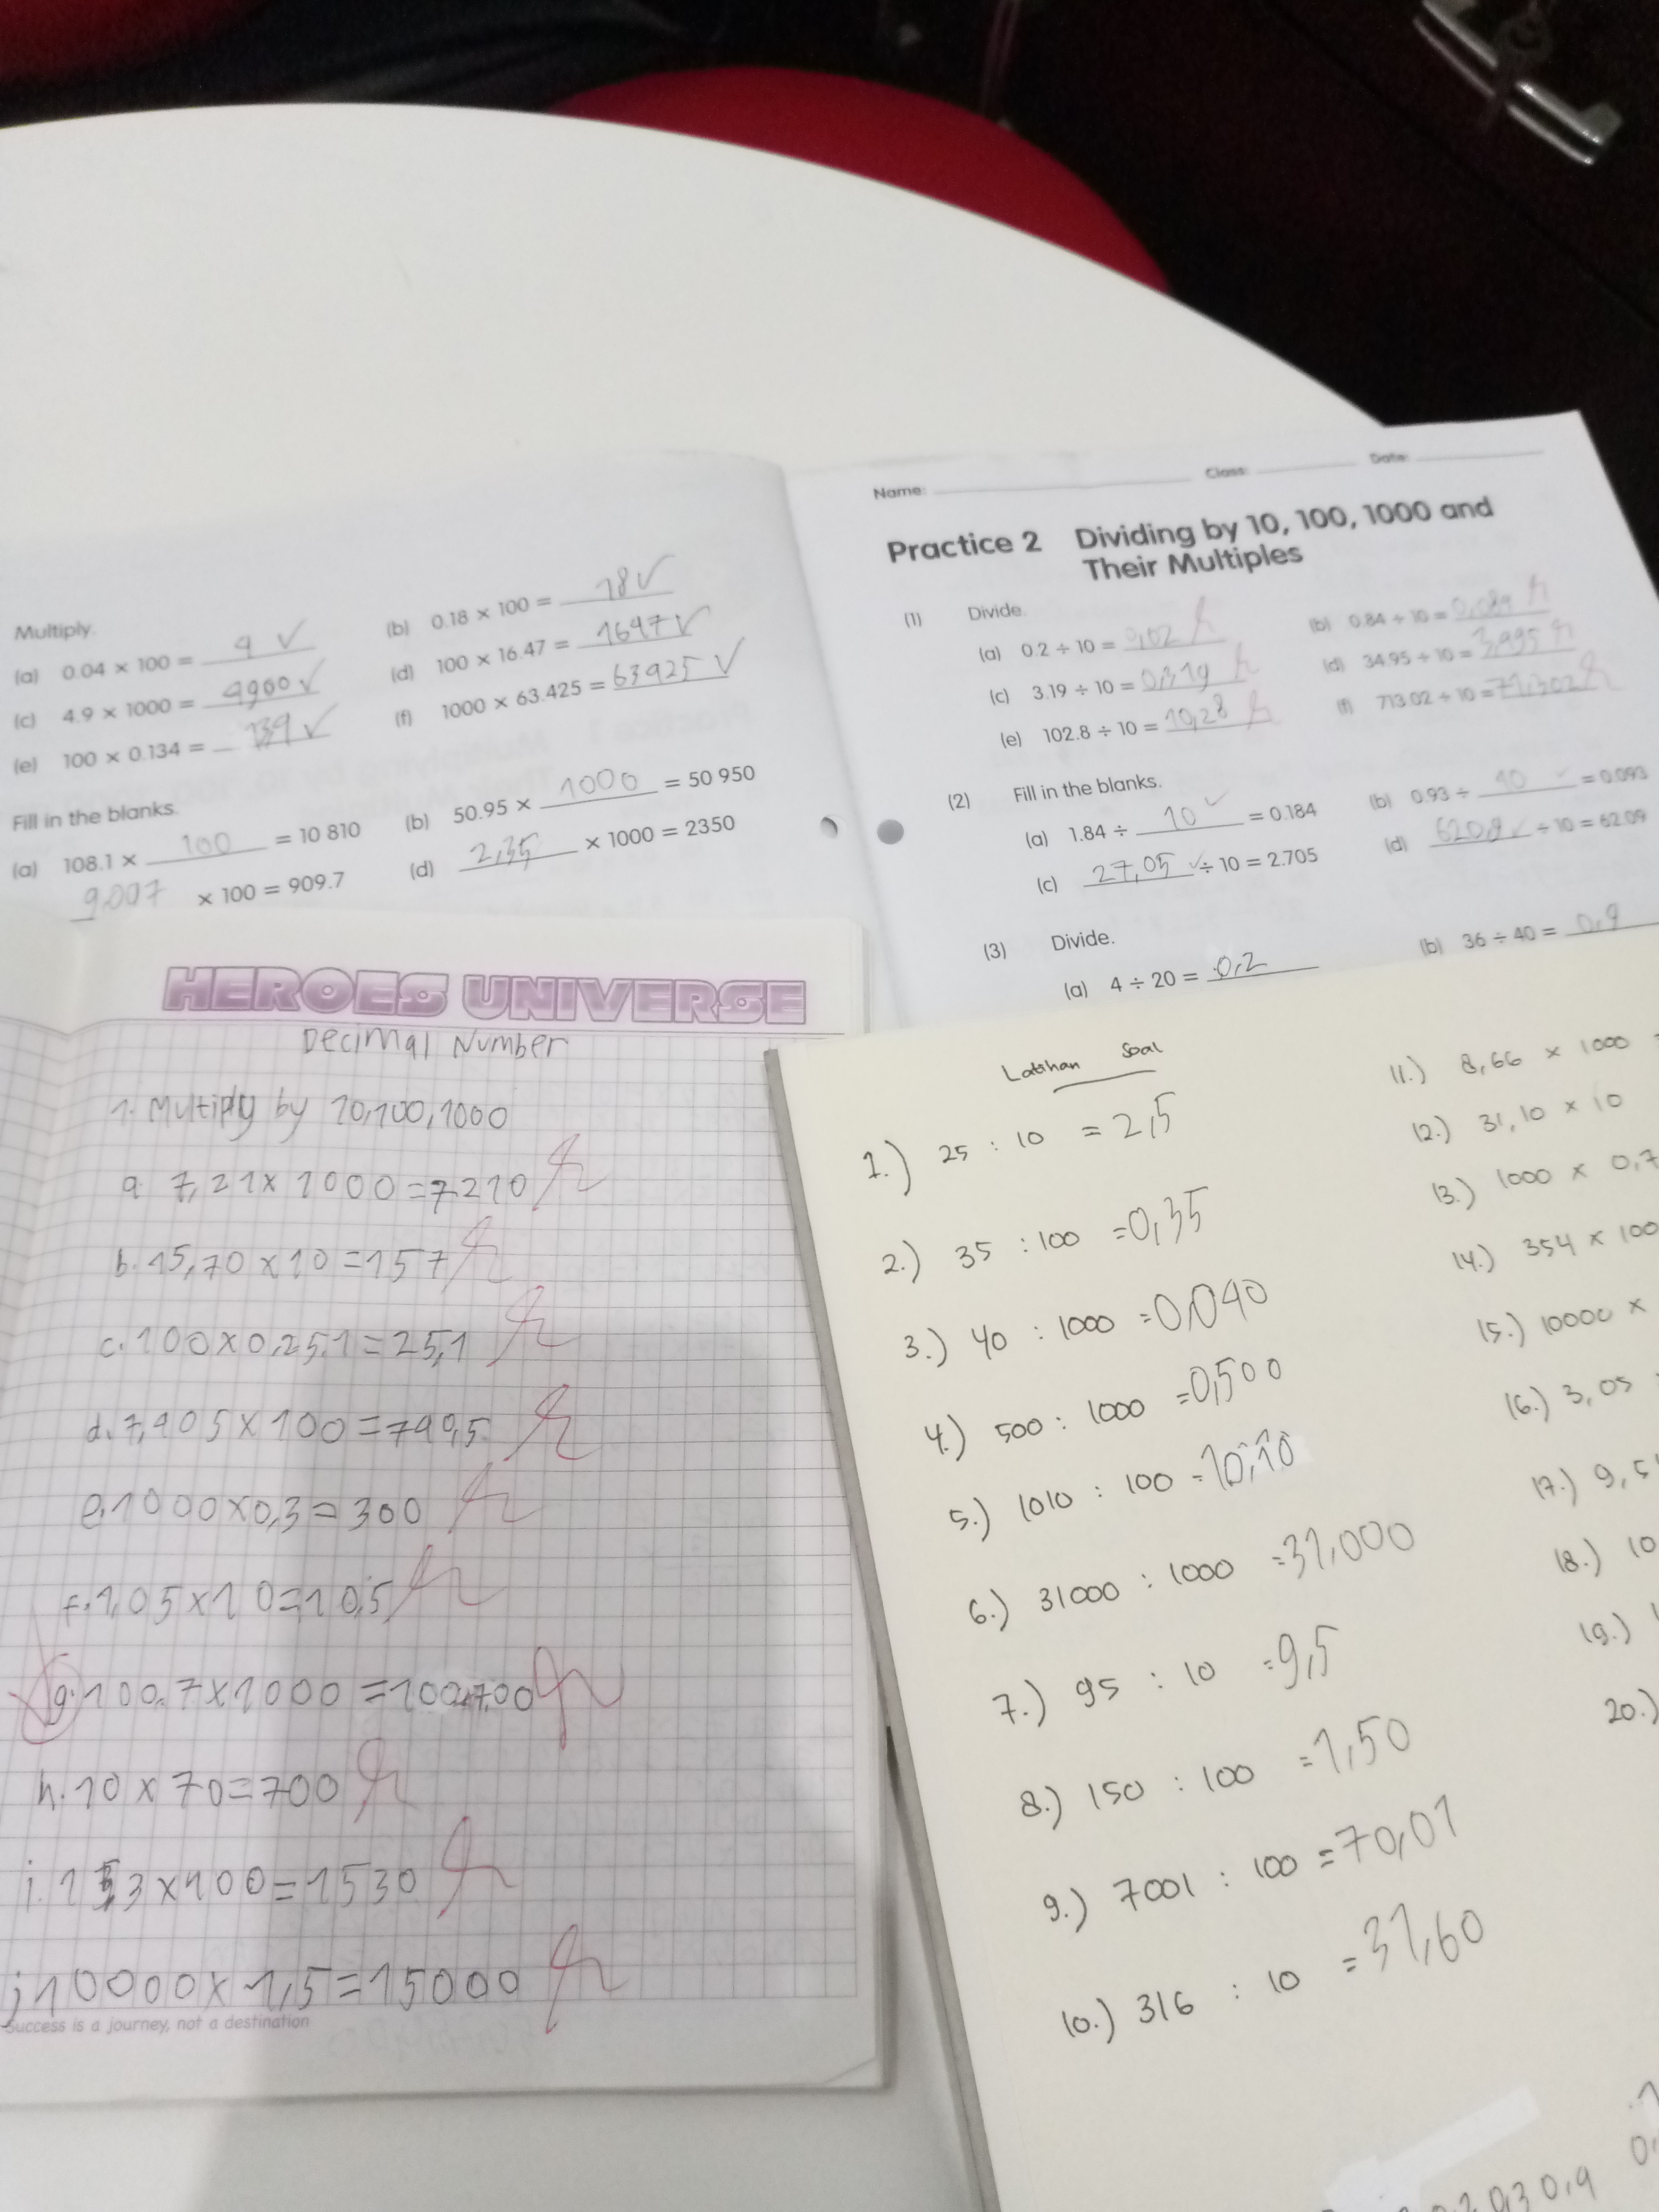 Multiply.
(a) 0.04 × 100 = 4 ✓
(b) 0.18 × 100 = 18 ✓
(c) 4.9 × 1000 = 4900 ✓
(d) 100 × 16.47 = 1647 ✓
(e) 100 × 0.134 = 13,4 ✓
(f) 1000 × 63.425 = 63425 ✓
Fill in the blanks.
(a) 108.1 × 100 = 10 810
(b) 50.95 × 1000 = 50 950
9,097 × 100 = 909.7
(d) 2,35 × 1000 = 2350
Name: Class: Date:
Practice 2 Dividing by 10, 100, 1000 and
Their Multiples
(1) Divide.
(a) 0.2 ÷ 10 = 0,02
(b) 0.84 ÷ 10 = 0,084
(c) 3.19 ÷ 10 = 0,319
(d) 34.95 ÷ 10 = 3,495
(e) 102.8 ÷ 10 = 10,28
(f) 713.02 ÷ 10 = 71,302
(2) Fill in the blanks.
(a) 1.84 ÷ 10 ✓ = 0.184
(b) 0.93 ÷ 10 ✓ = 0.093
(c) 27,05 ✓ ÷ 10 = 2.705
(d) 620,9 ✓ ÷ 10 = 62.09
(3) Divide.
(a) 4 ÷ 20 = 0,2
(b) 36 ÷ 40 = 0,9
HEROES UNIVERSE
Decimal Number
1. Multiply by 10,100,1000
a. 7,21 × 1000 = 7210
b. 15,70 × 10 = 157
c. 100 × 0,251 = 25,1
d. 7,405 × 100 = 740,5
e. 1000 × 0,3 = 300
f. 1,05 × 10 = 10,5
g. 100.7 × 1000 = 100.700
h. 10 × 70 = 700
i. 153 × 100 = 1530
j 10000 × 1,5 = 15000
Success is a journey, not a destination
Latihan Soal
1.) 25 : 10 = 2,5
2.) 35 : 100 = 0,35
3.) 40 : 1000 = 0,040
4.) 500 : 1000 = 0,500
5.) 1010 : 100 = 10,10
6.) 31000 : 1000 = 31,000
7.) 95 : 10 = 9,5
8.) 150 : 100 = 1,50
9.) 7001 : 100 = 70,01
10.) 316 : 10 = 31,60
11.) 8,66 × 1000
12.) 31,10 × 10
13.) 1000 × 0,7
14.) 354 × 100
15.) 10000 ×
16.) 3,05
17.) 9,5
18.) 10
19.)
20.)
0,3 0,4